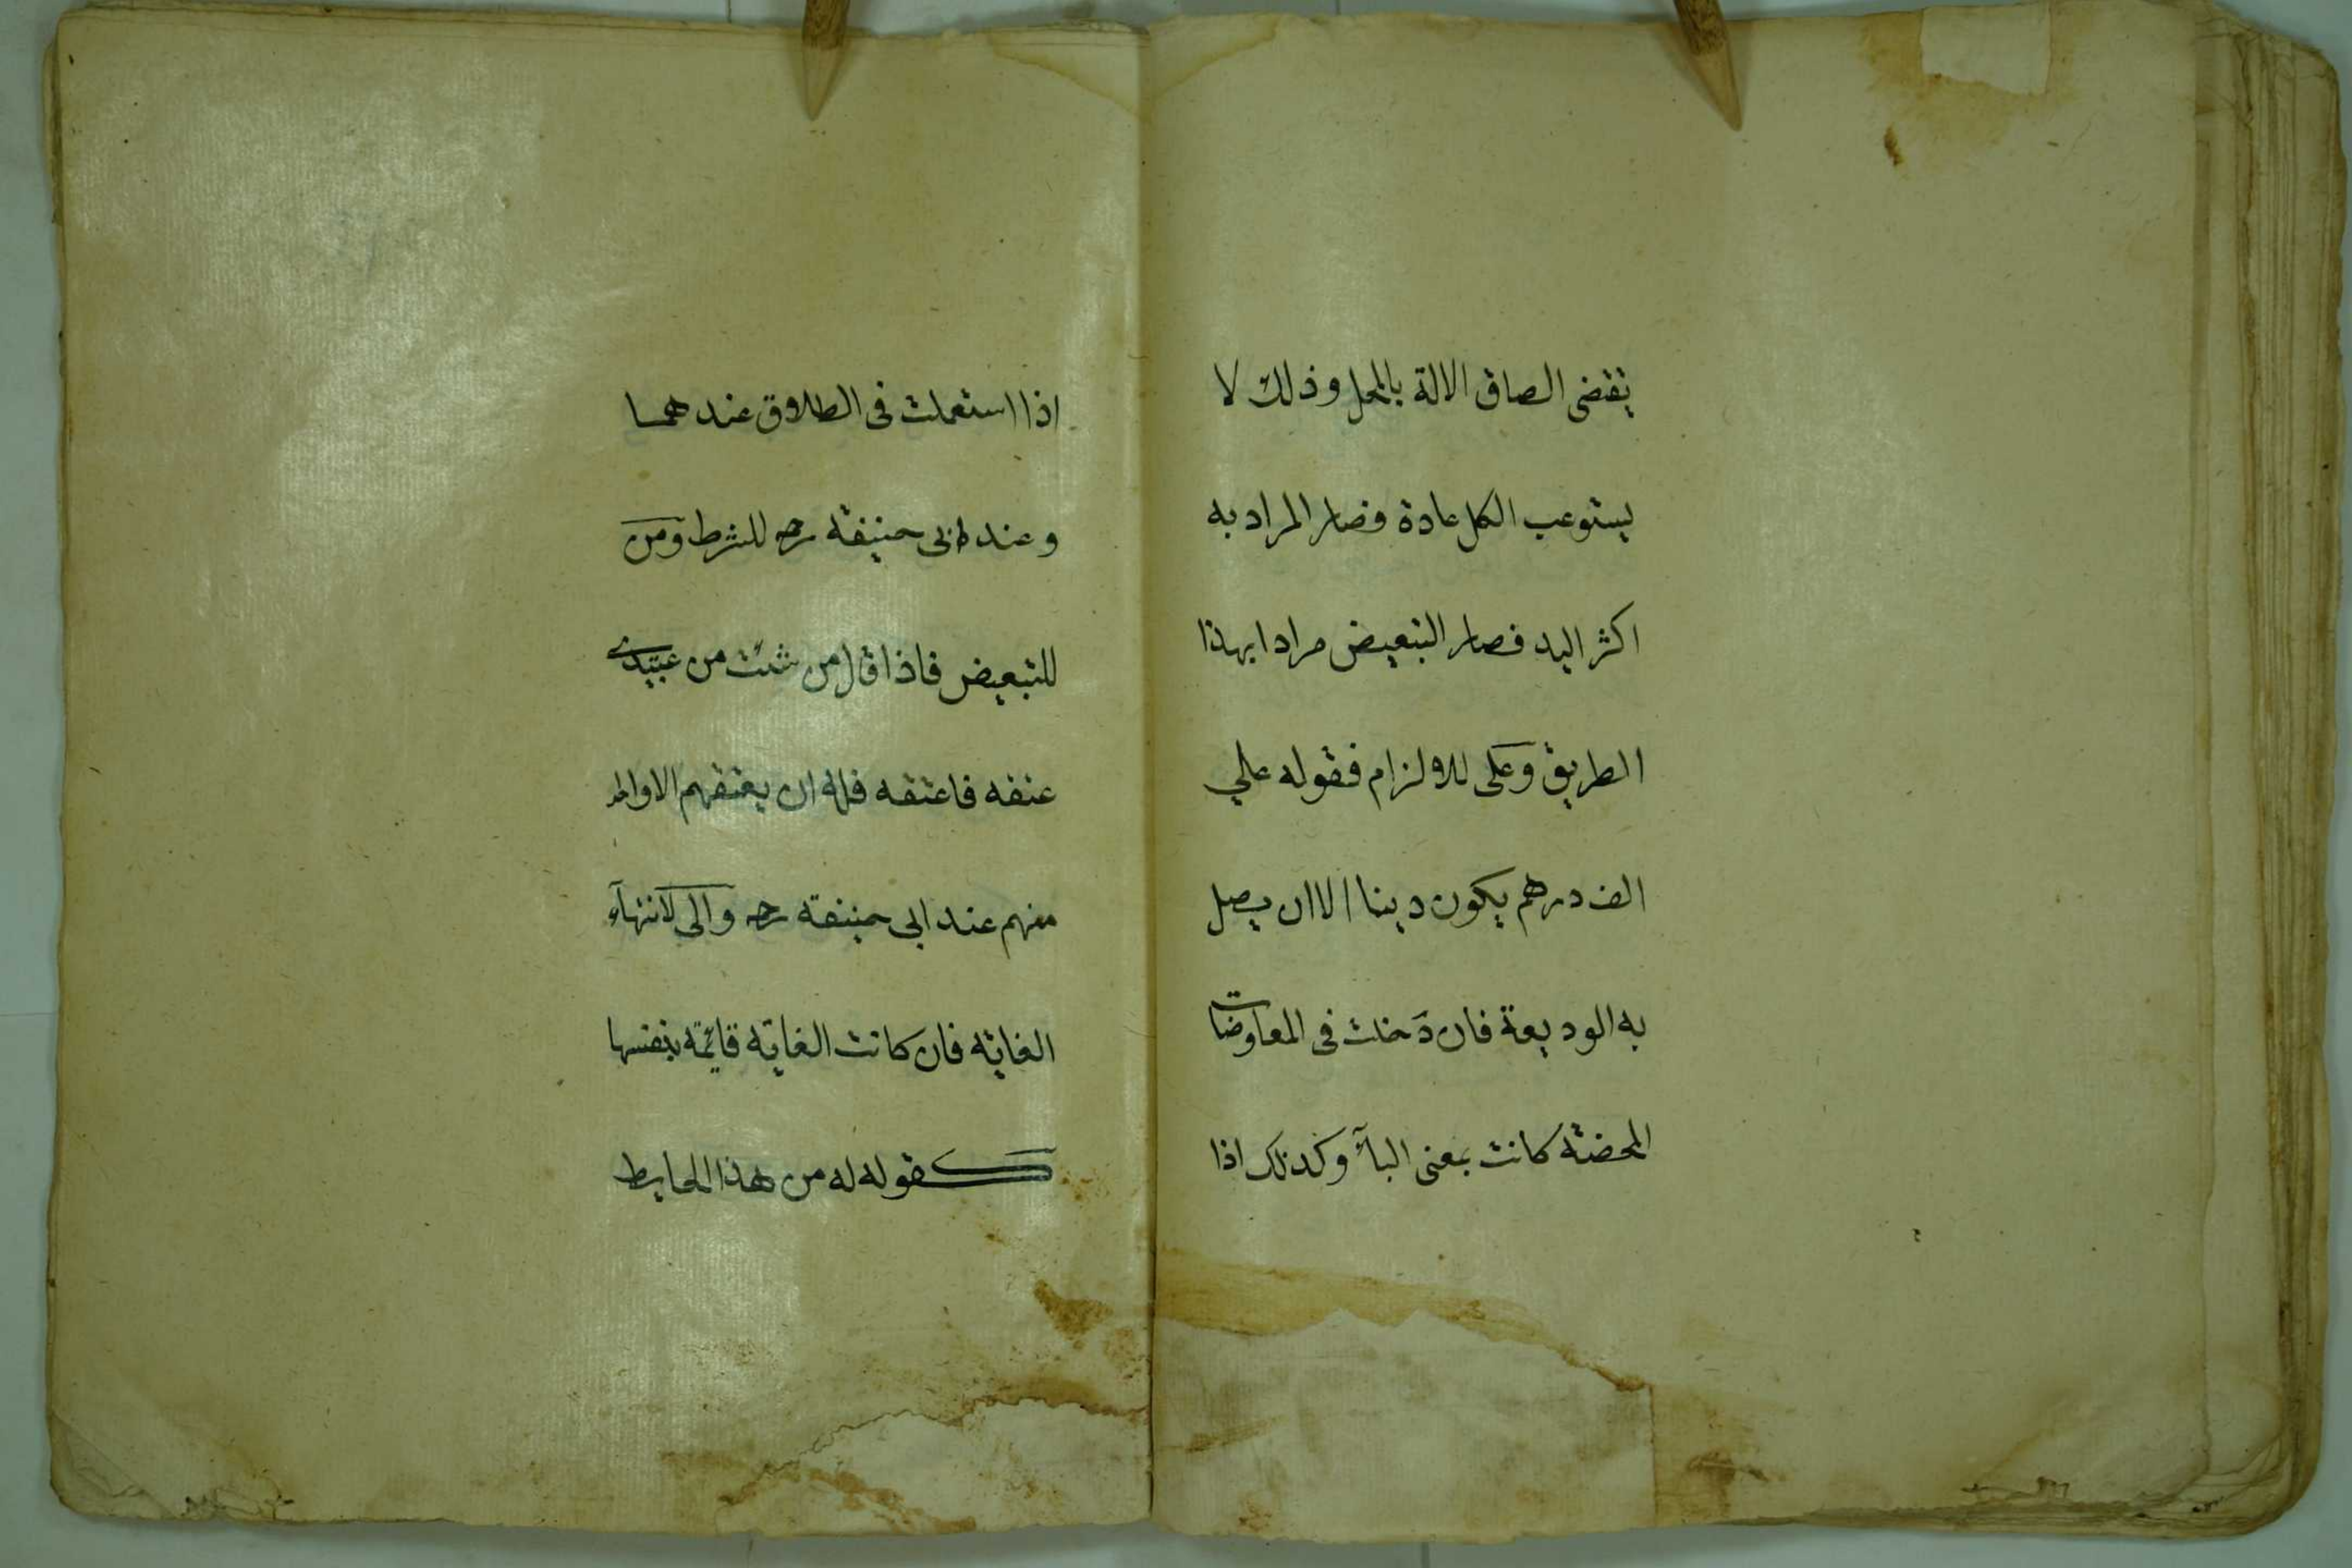 يقتضى الصاق الالة بالمحل وذلك لا
يستوعب الكل عادة فصار المراد به
اكثر اليد فصار التبعيض مرادا بهذا
الطريق وعلى للالزام فقوله علي
الف درهم يكون دينا الا ان يصل
به الوديعة فان دخلت فى المعاوضات
المحضة كانت بمعنى البآء وكذلك اذا
اذا استعملت فى الطلاق عندهما
وعند ابى حنيفة رحه للشرط ومن
للتبعيض فاذا قال من شئت من عبيدى
عتقه فاعتقه فله ان يعتقهم الا واحد
منهم عند ابى حنيفة رحه والى لانتهآء
الغاية فان كانت الغاية قائمة بنفسها
كقوله له من هذا الحايط